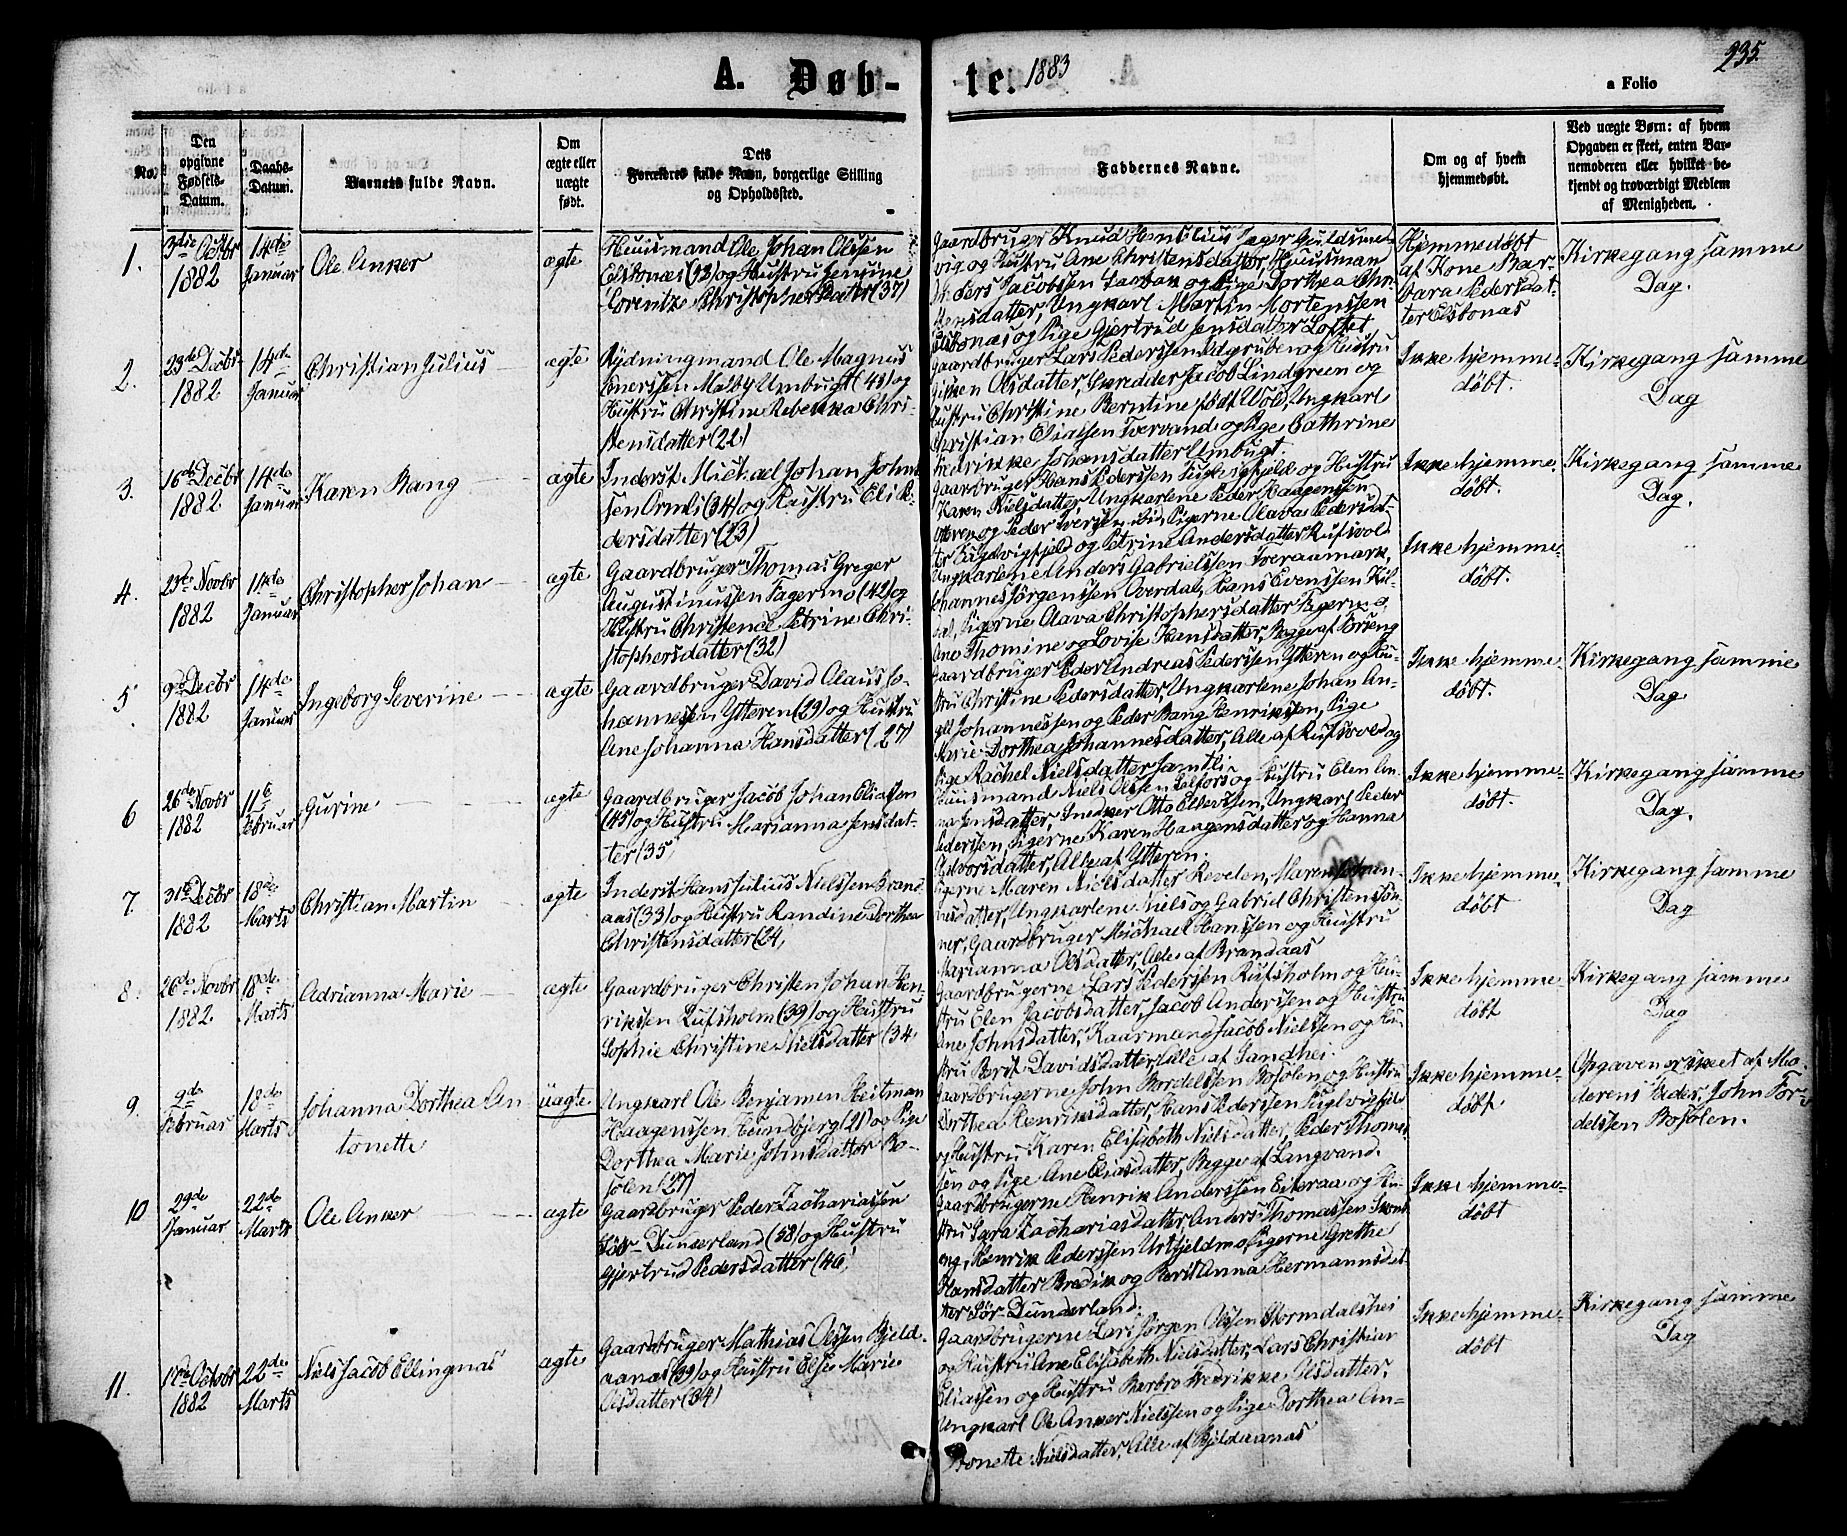 A. Døb-
te. 1883
235.
a Folio
No.
Den opgivne Fødsels-Datum.
Daabs-Datum.
Barnets fulde Navn.
Om ægte eller uægte født.
Dets Forældres fulde Navn, borgerlige Stilling og Opholdssted.
Faddernes Navne.
Om og af hvem hjemmedøbt.
Ved uægte Børn: af hvem Opgaven er skeet, enten Barnemoderen eller hvilket bekjendt og troværdigt Medlem af Menigheden.
1.
3die Octbr 1882
14de Januar
Ole Anker
ægte
Huusmand Ole Johan Olssen
og Hustru Jensine
Lorentze Christophersdatter (37)
Gaardbruger Knud
vig og Hustru Ane Christensdatter, Huusman
Jacobssen og Pige Dorthea Chri-
stensdatter, Ungkarl Martin Mortenssen
og Pige Gjertrud Jensdatter
Hjemmedøbt
af Kone Bar-
bara Pedersdat-
ter
Kirkegang samme
Dag.
2.
23de Decbr 1882
14de Januar
Christian Julius
ægte
Rydningmand Ole Magnus
Umbugt (43) og
Hustru Christine Rebekka Chri-
stensdatter (22)
Gaardbruger Lars Pederssen og Hustru
Olsdatter, Skredder Jacob Lindgreen og
Hustru Christine Berntine født Wold, Ungkarl
Christian Eliassen Tvervand og Pige Cathrine
Fredrikke Johansdatter Umbugt.
Ikke hjemme-
døbt.
Kirkegang samme
Dag
3.
16de Decbr 1882
14de Januar
Karen Bang
ægte
Inderst Michael Johan Johns-
sen (34) og Hustru
dersdatter (23)
Gaardbruger Hans Pederssen og Hustru
Karen Nielsdatter, Ungkarlene Peder Haagenssen
Ytteren og Peder Iverssen ibid, Pigerne Olava Pedersdat-
ter og Petrine Andersdatter
Ikke hjemme-
døbt.
Kirkegang samme
Dag.
4.
Novbr
1882
14de Januar
Christopher Johan
ægte
Gaardbruger Thomas Greger
Augustinussen Fagermo (42) og
Hustru Christence Petrine Chri-
stophersdatter (32)
Ungkarlene Anders Gabrielssen Tveraamark,
Johannes Jørgenssen Overdal, Hans Evenssen Kil-
dal, Pigerne Olava Christophersdatter
Ane Thomine og Lovise Hansdatter, Begge af
Ikke hjemme-
døbt.
5
9de Decbr 1882
14de Januar
Ingeborg Severine
ægte
Gaardbruger David Olaus Jo-
hannessen Ytteren (29) og Hustru
Ane Johanna Hansdatter (27)
Gaardbruger Peder Andreas Pederssen Ytteren og Hu-
stru Christine Pedersdatter, Ungkarlene Johan An-
Johannessen og Peder Bang Henrikssen, Pige
Marie Dorthea Johannesdatter, Alle af og
Pige Rachel Nielsdatter
Ikke hjemme-
døbt.
Kirkegang samme
Dag
6
26de Novbr 1882
11te Februar
Gurine
ægte
Gaardbruger Jacob Johan Eliassen
(45) og Hustru Marianna Jensdat-
ter (35)
Huusmand Niels Olssen Selfors og Hustru Elen An-
na Jensdatter, Snedker Otto Ellevssen, Ungkarl Peder
Pederssen, Pigerne Karen Haagensdatter og Hanna
Alle af Ytteren.
Ikke hjemme-
døbt.
Kirkegang samme
Dag.
7.
31te Decbr 1882
18de Marts
Christian Martin
ægte
Inderst Hans Julius Nielssen Brand-
aas (33) og Hustru Randine Dorthea
Christensdatter (24)
Pigerne Maren Nielsdatter Revelen, Maren
Ungkarlene Niels og Gabriel Christenssøn-
ner, Gaardbruger Michael Hanssen og Hustru
Marianna Olsdatter, Alle af Brandaas
Ikke hjemme-
døbt
Kirkegang samme
Dag
8.
26de Novbr 1882
18de Marts
Adrianna Marie
ægte
Gaardbruger Christen Johan Hen-
rikssen Rufsholm (39) og Hustru
Sophie Christine Nielsdatter (34
Gaardbrugerne Lars Pederssen Rufsholm og Hu-
stru Elen Jacobsdatter, Jacob Anderssen og Hustru
Ane Johnsdatter, Kaarmand Jacob Nielssen og Hu-
stru Berit Davidsdatter, Alle af Sandhei.
Ikke hjemme-
døbt
Kirkegang samme
Dag
9.
9de Februar
18de Marts
Johanna Dorthea An-
tonette
uægte
Ungkarl Ole Benjamin Heitman
Haagenssen (21) og Pige
Dorthea Marie Johnsdatter Bo-
solen (27)
Gaardbrugerne John Bordelssen Bosolen og Hustru
Dorthea Henriksdatter, Hans Pederssen
og Hustru Karen Elisabeth Nielsdatter, Peder Thomes-
sen og Pige Ane Eliasdatter, Begge af Langvand.
Ikke hjemme-
døbt
Opgaven er skeet af Mo-
derens Fader, John
Bosolen.
10
29de Januar
22de Marts
Ole Anker
ægte
Gaardbruger Peder Zachariassen
Sør-Dunderland (38) og Hustru
Gjertrud Pedersdatter (40)
Gaardbrugerne Henrik Anderssen Eiteraa og Hu-
stru Sara Zachariasdatter, Anders Thomassen
eng, Henrik Pederssen Urtfjeldmo, Pigerne Grethe
Hansdatter Bredik og Berit Anna Hermannsdat-
ter Sør-Dunderland.
Ikke hjemme-
døbt
11.
October
1882
22de Marts
Niels Jacob Ellingnas
ægte
Gaardbruger Mathias Olssen Bjeld-
aanas (39) og Hustru Else Marie
Olsdatter (34)
Gaardbrugerne Lars Jørgen Olssen Stormdalshei
og Hustru Ane Elisabeth Nielsdatter, Lars Christian
Eliassen og Hustru Barbro Fredrikke Olsdatter,
Ungkarl Ole Anker Nielssen og Pige Dorthea An-
tonette Nielsdatter, Alle af Bjeldaanas
Ikke hjemme-
døbt
Kirkegang samme
Dag